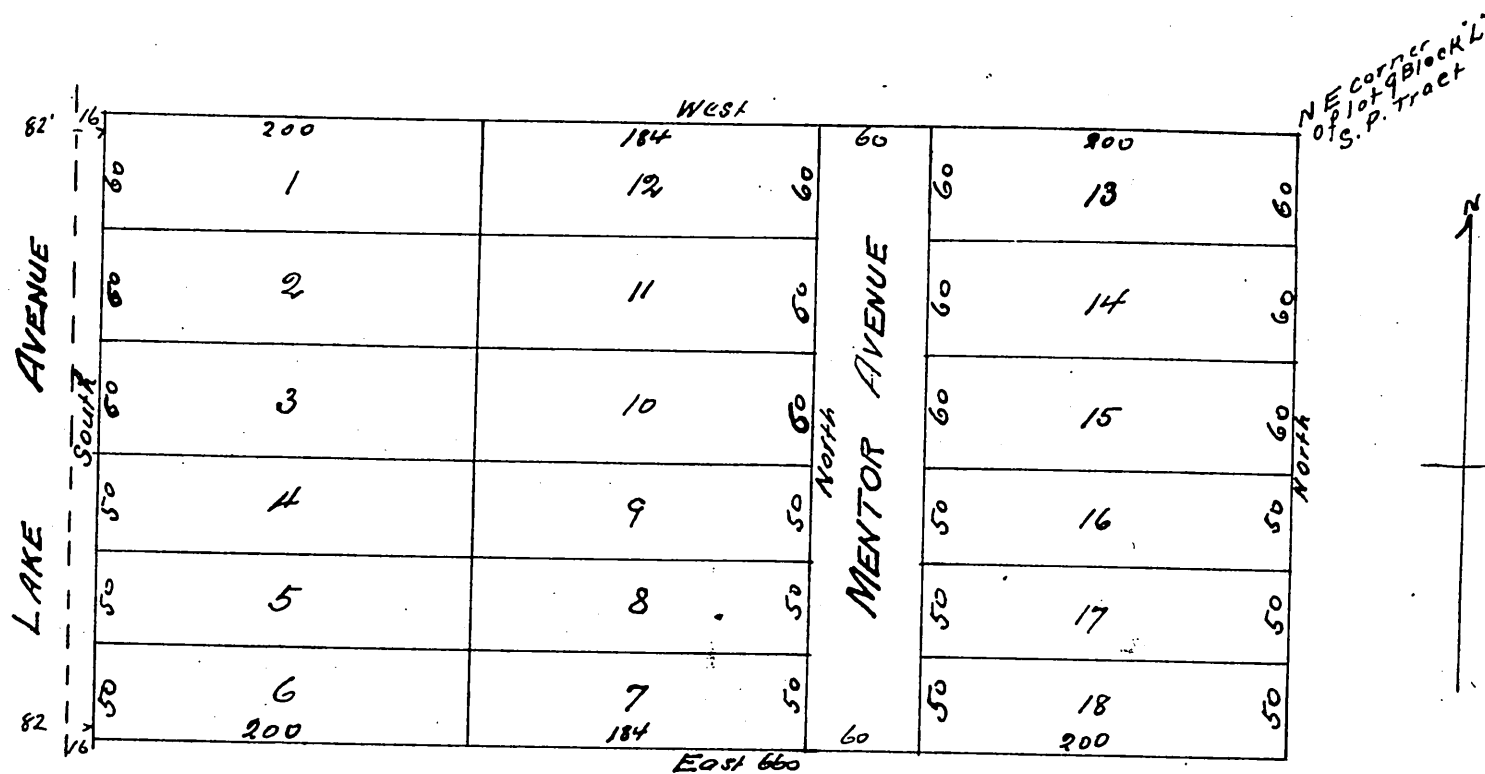 N E corner
of lot 9 Block "L"
of S. P. Tract
West
82' 16 200 184 60 200
60 1 12 60 60 13 60
60 2 11 60 60 14 60
60 3 10 60 60 15 60
50 4 9 50 50 16 50
50 5 8 50 50 17 50
50 6 7 50 50 18 50
82 16 200 184 60 200
East 660
LAKE AVENUE
South
North
MENTOR AVENUE
North
N